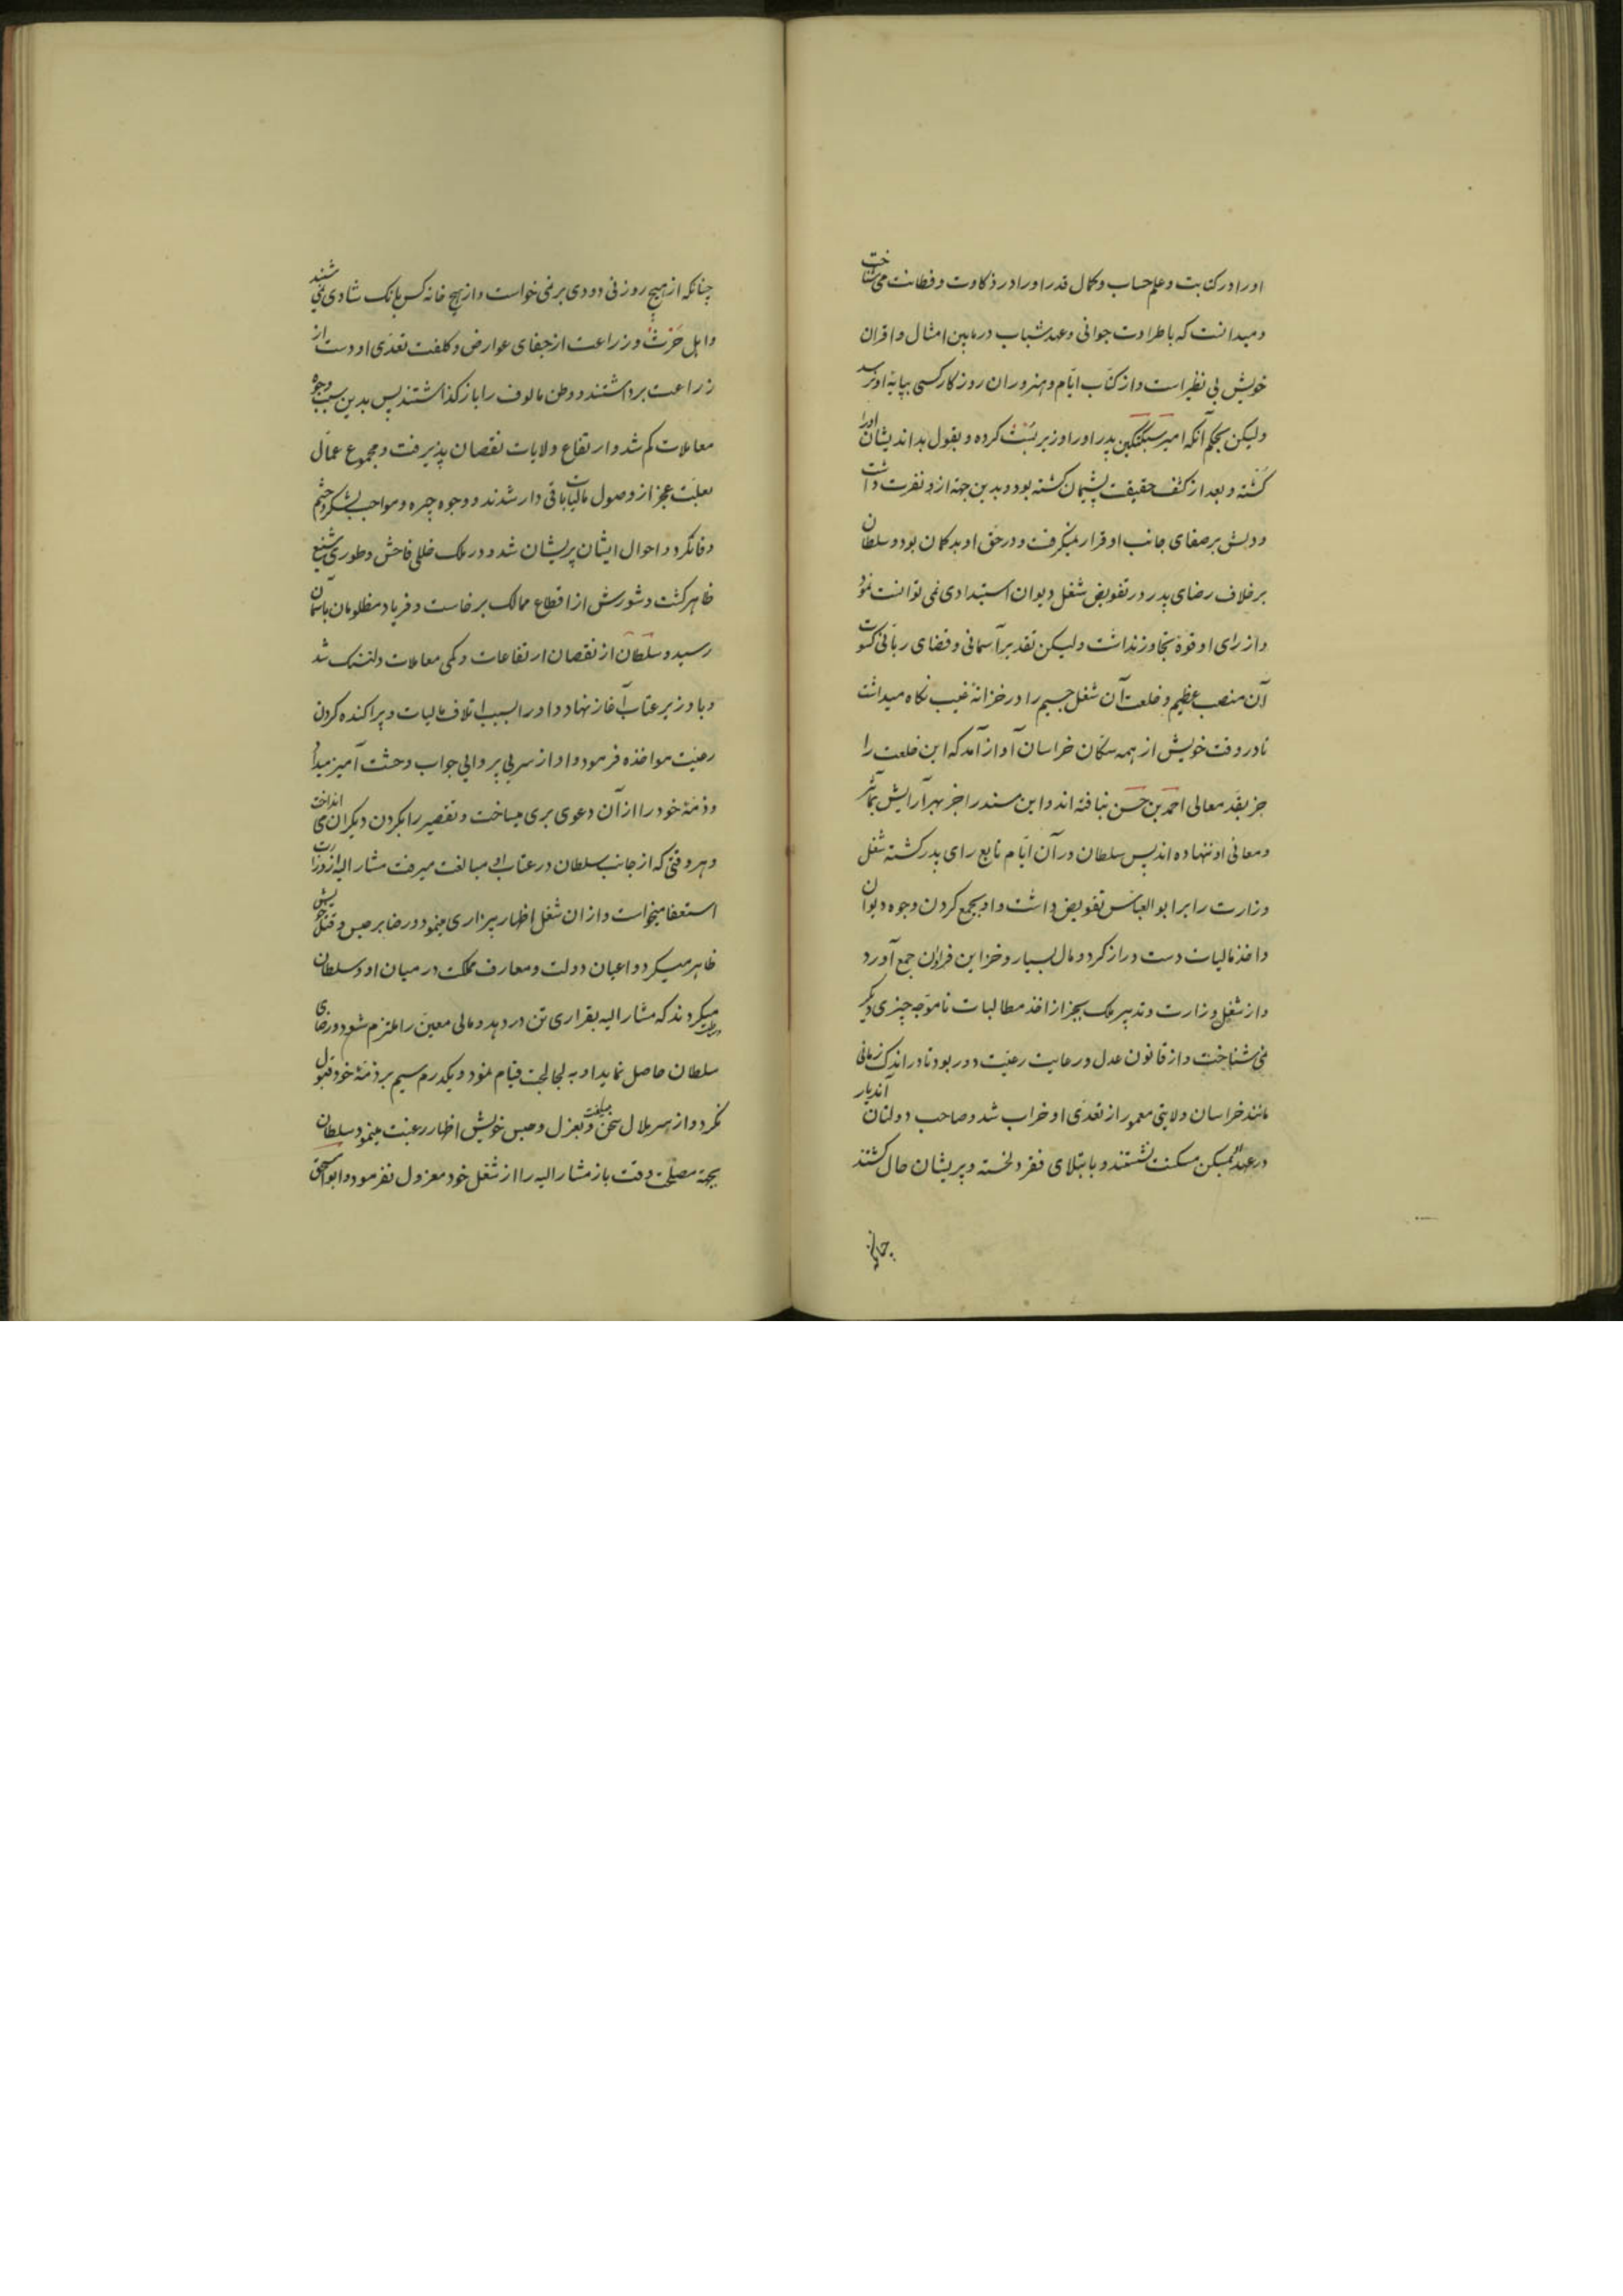 او را در کتابت و علم حساب و کمال قدر او را در ذکاوت و فطانت می شناخت
و میدانست که با طراوت جوانی و عهد شباب در مابین امثال و اقران
خویش بی نظیر است و از کتّاب ایّام و هنروران روزکار کسی بپایۀ او نرسد
ولیکن بحکم آنکه امیر سبکتکین پدر او را وزیر بُست کرده و بقول بداندیشان او را
کشته و بعد از کشف حقیقت پشیمان کشته بود و بدین جهة ازو نفرت داشت
و دلش بر صفای جانب او قرار نمیکرفت و در حق او بد کمان بود و سلطان
بر خلاف رضای پدر در تفویض شغل دیوان استبدادی نمی توانست نمود
و از رای او قوة تجاوز نداشت ولیکن تقدیر آسمانی و قضای ربّانی کسوت
آن منصب عظیم و خلعت آن شغل جسیم را در خزانۀ غیب نکاه میداشت
تا در وقت خویش از همه سکّان خراسان آواز آمد که این خلعت را
جز بقد معالی احمد بن حسن نبافته اند و این مسند را جز بهر آرایش بمآثر
و معانی او ننهاده اند پس سلطان در آن ایّام تابع رای پدر کشته شغل
وزارت را بر ابو العبّاس تفویض داشت و او بجمع کردن وجوه دیوان
و اخذ مالیات دست دراز کرد و مال بسیار و خزاین فراوان جمع آورد
و از شغل وزارت و تدبیر ملک بجز از اخذ مطالبات ناموجّه چیزی دیکر
نمی شناخت و از قانون عدل و رعایت رعیّت دور بود تا در اندک زمانی
مانند خراسان ولایتی معمور از تعدّی او خراب شد و صاحب دولتان آندیار
در عهد بمسکن مسکنت نشستند و بابتلای فقر دلخسته و پریشان حال کشتند
چنانکه
چنانکه از هیچ روزنی دودی بر نمی خواست و از هیچ خانه کس بانک شادی نمی شنید
و اهل حَرث و زراعت از جفای عوارض و کلفت تعدّی او دست از
زراعت برداشتند و وطن مالوف را باز کذاشتند پس بدین سبب وجوه
معاملات کم شد و ارتفاع ولایات نقصان پذیرفت و مجموع عمّال
بعلّت عجز از وصول مالیات باقی دار شدند و وجوه جیره و مواجب لشکر و حشم
وفا نکرد و احوال ایشان پریشان شد و در ملک خللی فاحش و طوری شنیع
ظاهر کشت و شورش از اقطاع ممالک برخاست و فریاد مظلومان بآسمان
رسید و سلطان از نقصان ارتفاعات و کمی معاملات دلتنک شد
و با وزیر عتاب آغاز نهاد و او را بسبب اتلاف مالیات و پراکنده کردن
رعیّت مواخذه فرمود و او از سر بی پروایی جواب وحشت آمیز میداد
و ذمّۀ خود را از آن دعوی بری میساخت و تقصیر را بکردن دیکران می انداخت
و هر وقتی که از جانب سلطان در عتاب او مبالغت میرفت مشار الیه از وزارت
استعفا میخواست و از ان شغل اظهار بیزاری مینمود و رضا بر حبس و قتل خویش
ظاهر میکرد و اعیان دولت و معارف مملکت در میان او و سلطان
میکردند که مشار الیه بقراری تن در دهد و مالی معین را ملتزم شود و رضای
سلطان حاصل نماید او به لجاجت قیام نمود و یکدرم سیم بر ذمّۀ خود قبول
نکرد و از سر ملال سخن و بعزل و حبس خویش اظهار رغبت مینمود سلطان
بجهة مصلحت وقت باز مشار الیه را از شغل خود معزول نفرمود و ابو اسحق